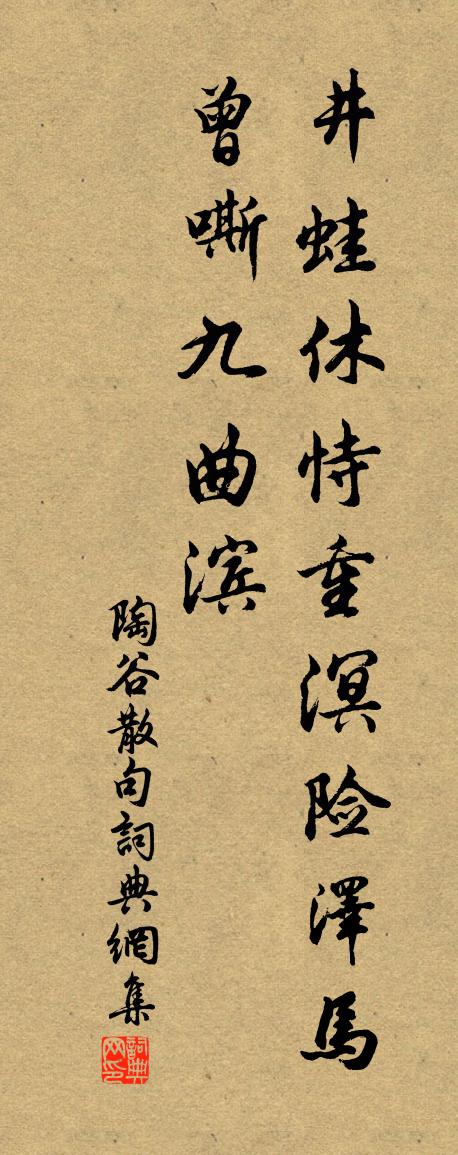 井蛙休恃重溟险澤馬
曾嘶九曲滨
陶谷散句詞典網集
詞典网印